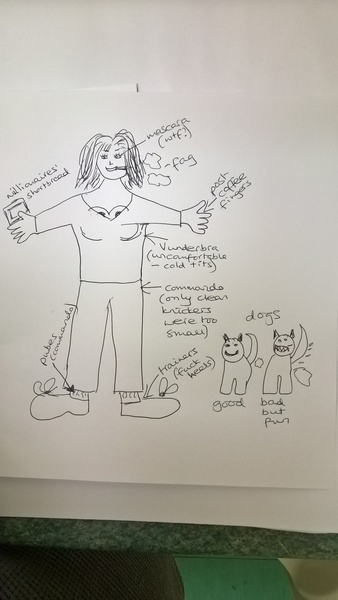 mascara
(wtf?)
fag
millionaires
shortbread
post
coffee
fingers
Wunderbra
(uncomfortable
- cold tits)
Commando
(only clean
knickers
were too
small)
pubes
(commando)
trainers
(fuck
heels)
dogs
good
bad
but
fun